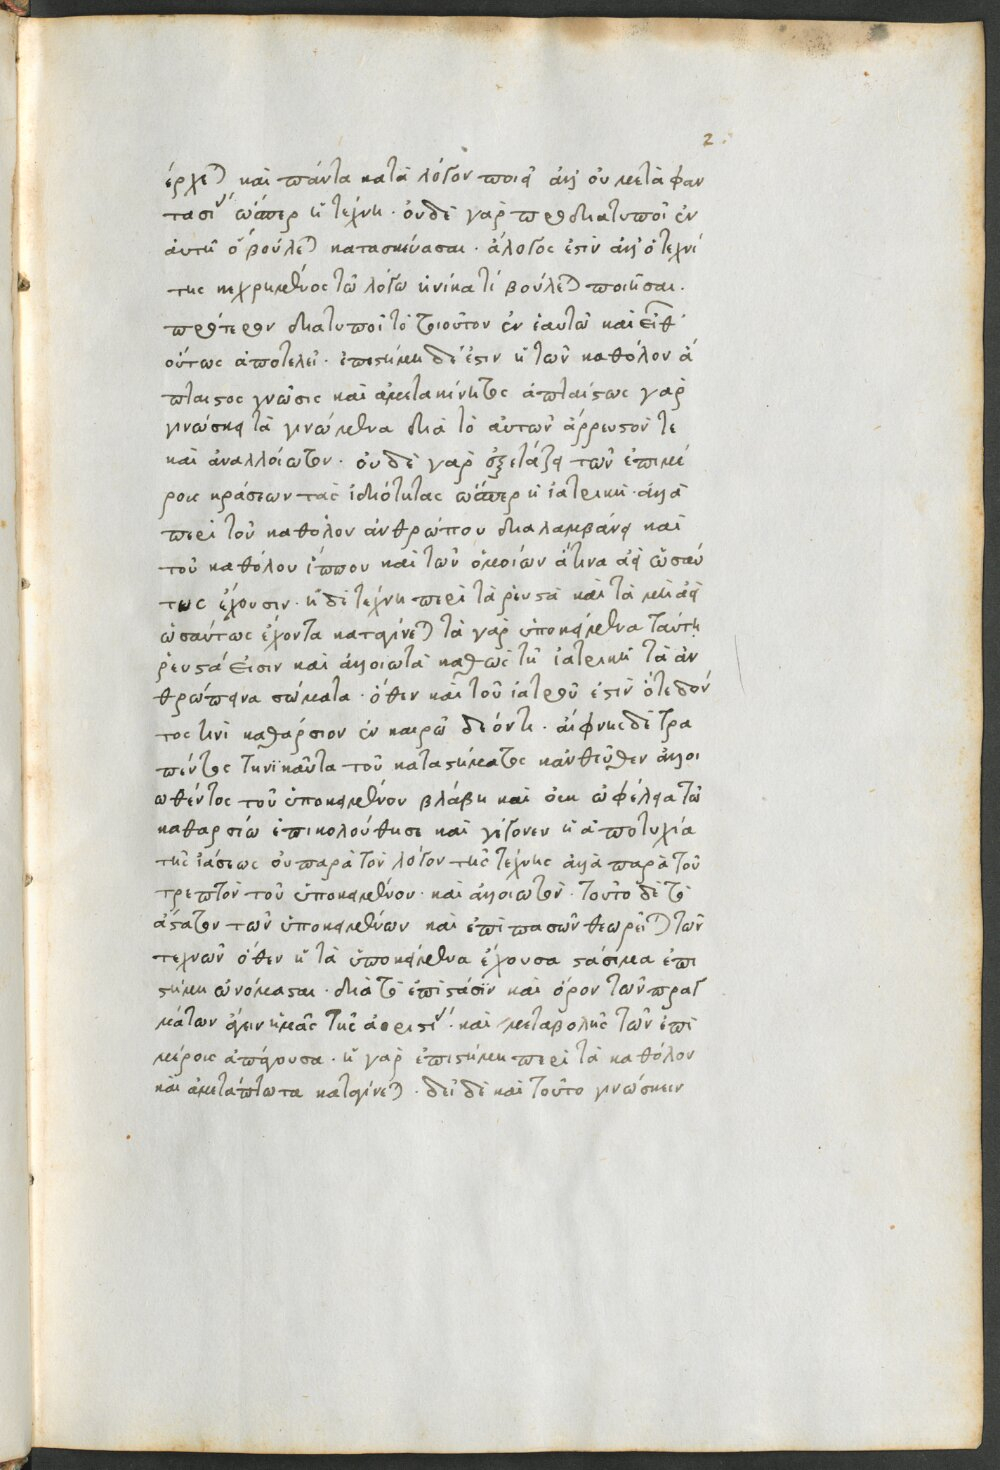 2
ἔρχε) καὶ πάντα κατὰ λόγον ποιεῖ ἀλλ' οὐ μετὰ φαν
τασί ὥσπερ ἡ τέχνη · οὐδὲ γὰρ προδιατυποῖ ἐν
ἑαυτῇ ὃ βούλε) κατασκευάσαι · ἄλογός ἐστιν ἀλλ' ὁ τεχνί
της κεχρημένος τῷ λόγῳ ἡνίκα τί βούλε) ποιῆσαι ·
πρότερον διατυποῖ τὸ τοιοῦτον ἐν ἑαυτῷ καὶ εἶθ'
οὕτως ἀποτελεῖ · ἐπιστήμη δέ ἐστιν ἡ τῶν καθόλου ἄ
πταιστος γνῶσις καὶ ἀμετακίνητος ἀπταίστως γὰρ
γινώσκει τὰ γινώμενα διὰ τὸ αὐτῶν ἄρρευστόν τε
καὶ ἀναλλοίωτον · οὐδὲ γὰρ ἐξετάζει τῶν ἐπιμέ
ρους κράσεων τὰς ἰδιότητας ὥσπερ ἡ ἰατρικὴ · ἀλλὰ
περὶ τοῦ καθόλου ἀνθρώπου διαλαμβάνει καὶ
τοῦ καθόλου ἵππου καὶ τῶν ὁμοίων ἅτινα ἀεὶ ὡσαύ
τως ἔχουσιν · ἡ δὲ τέχνη περὶ τὰ ῥευστὰ καὶ τὰ μὴ ἀεὶ
ὡσαύτως ἔχοντα καταγίνε) τὰ γὰρ ὑποκείμενα ταύτῃ
ῥευστά εἰσιν καὶ ἀλλοιωτὰ καθὼς τῇ ἰατρικῇ τὰ ἀν
θρώπεινα σώματα · ὅθεν καὶ τοῦ ἰατροῦ ἐστὶν ὅτε δόν
τος τινὶ καθάρσιον ἐν καιρῷ δέοντι · αἴφνης δὲ τρα
πέντος τηνικαῦτα τοῦ καταστήματος κἀντεῦθεν ἀλλοι
ωθέντος τοῦ ὑποκειμένου βλάβη καὶ οὐκ ὠφέλεια τῷ
καθαρσίῳ ἐπικολούθησε καὶ γέγονεν ἡ ἀποτυχία
τῆς ἰάσεως οὐ παρὰ τὸν λόγον τῆς τέχνης ἀλλὰ παρὰ τοῦ
τρεπτὸν τοῦ ὑποκειμένου · καὶ ἀλλοιωτόν · τοῦτο δὲ τὸ
ἄστατον τῶν ὑποκειμένων καὶ ἐπὶ πασῶν θεωρεῖ) τῶν
τεχνῶν ὅθεν ἡ τὰ ὑποκείμενα ἔχουσα στάσιμα ἐπι
στήμη ὠνόμασται · διὰ τὸ ἐπίστασιν καὶ ὅρον τῶν πραγ
μάτων ἄγειν ἡμᾶς τῆς ἀοριστί · καὶ μεταβολῆς τῶν ἐπὶ
μέρους ἀπάγουσα · ἡ γὰρ ἐπιστήμη περὶ τὰ καθόλου
καὶ ἀμετάπτωτα καταγίνε) · δεῖ δὲ καὶ τοῦτο γινώσκειν